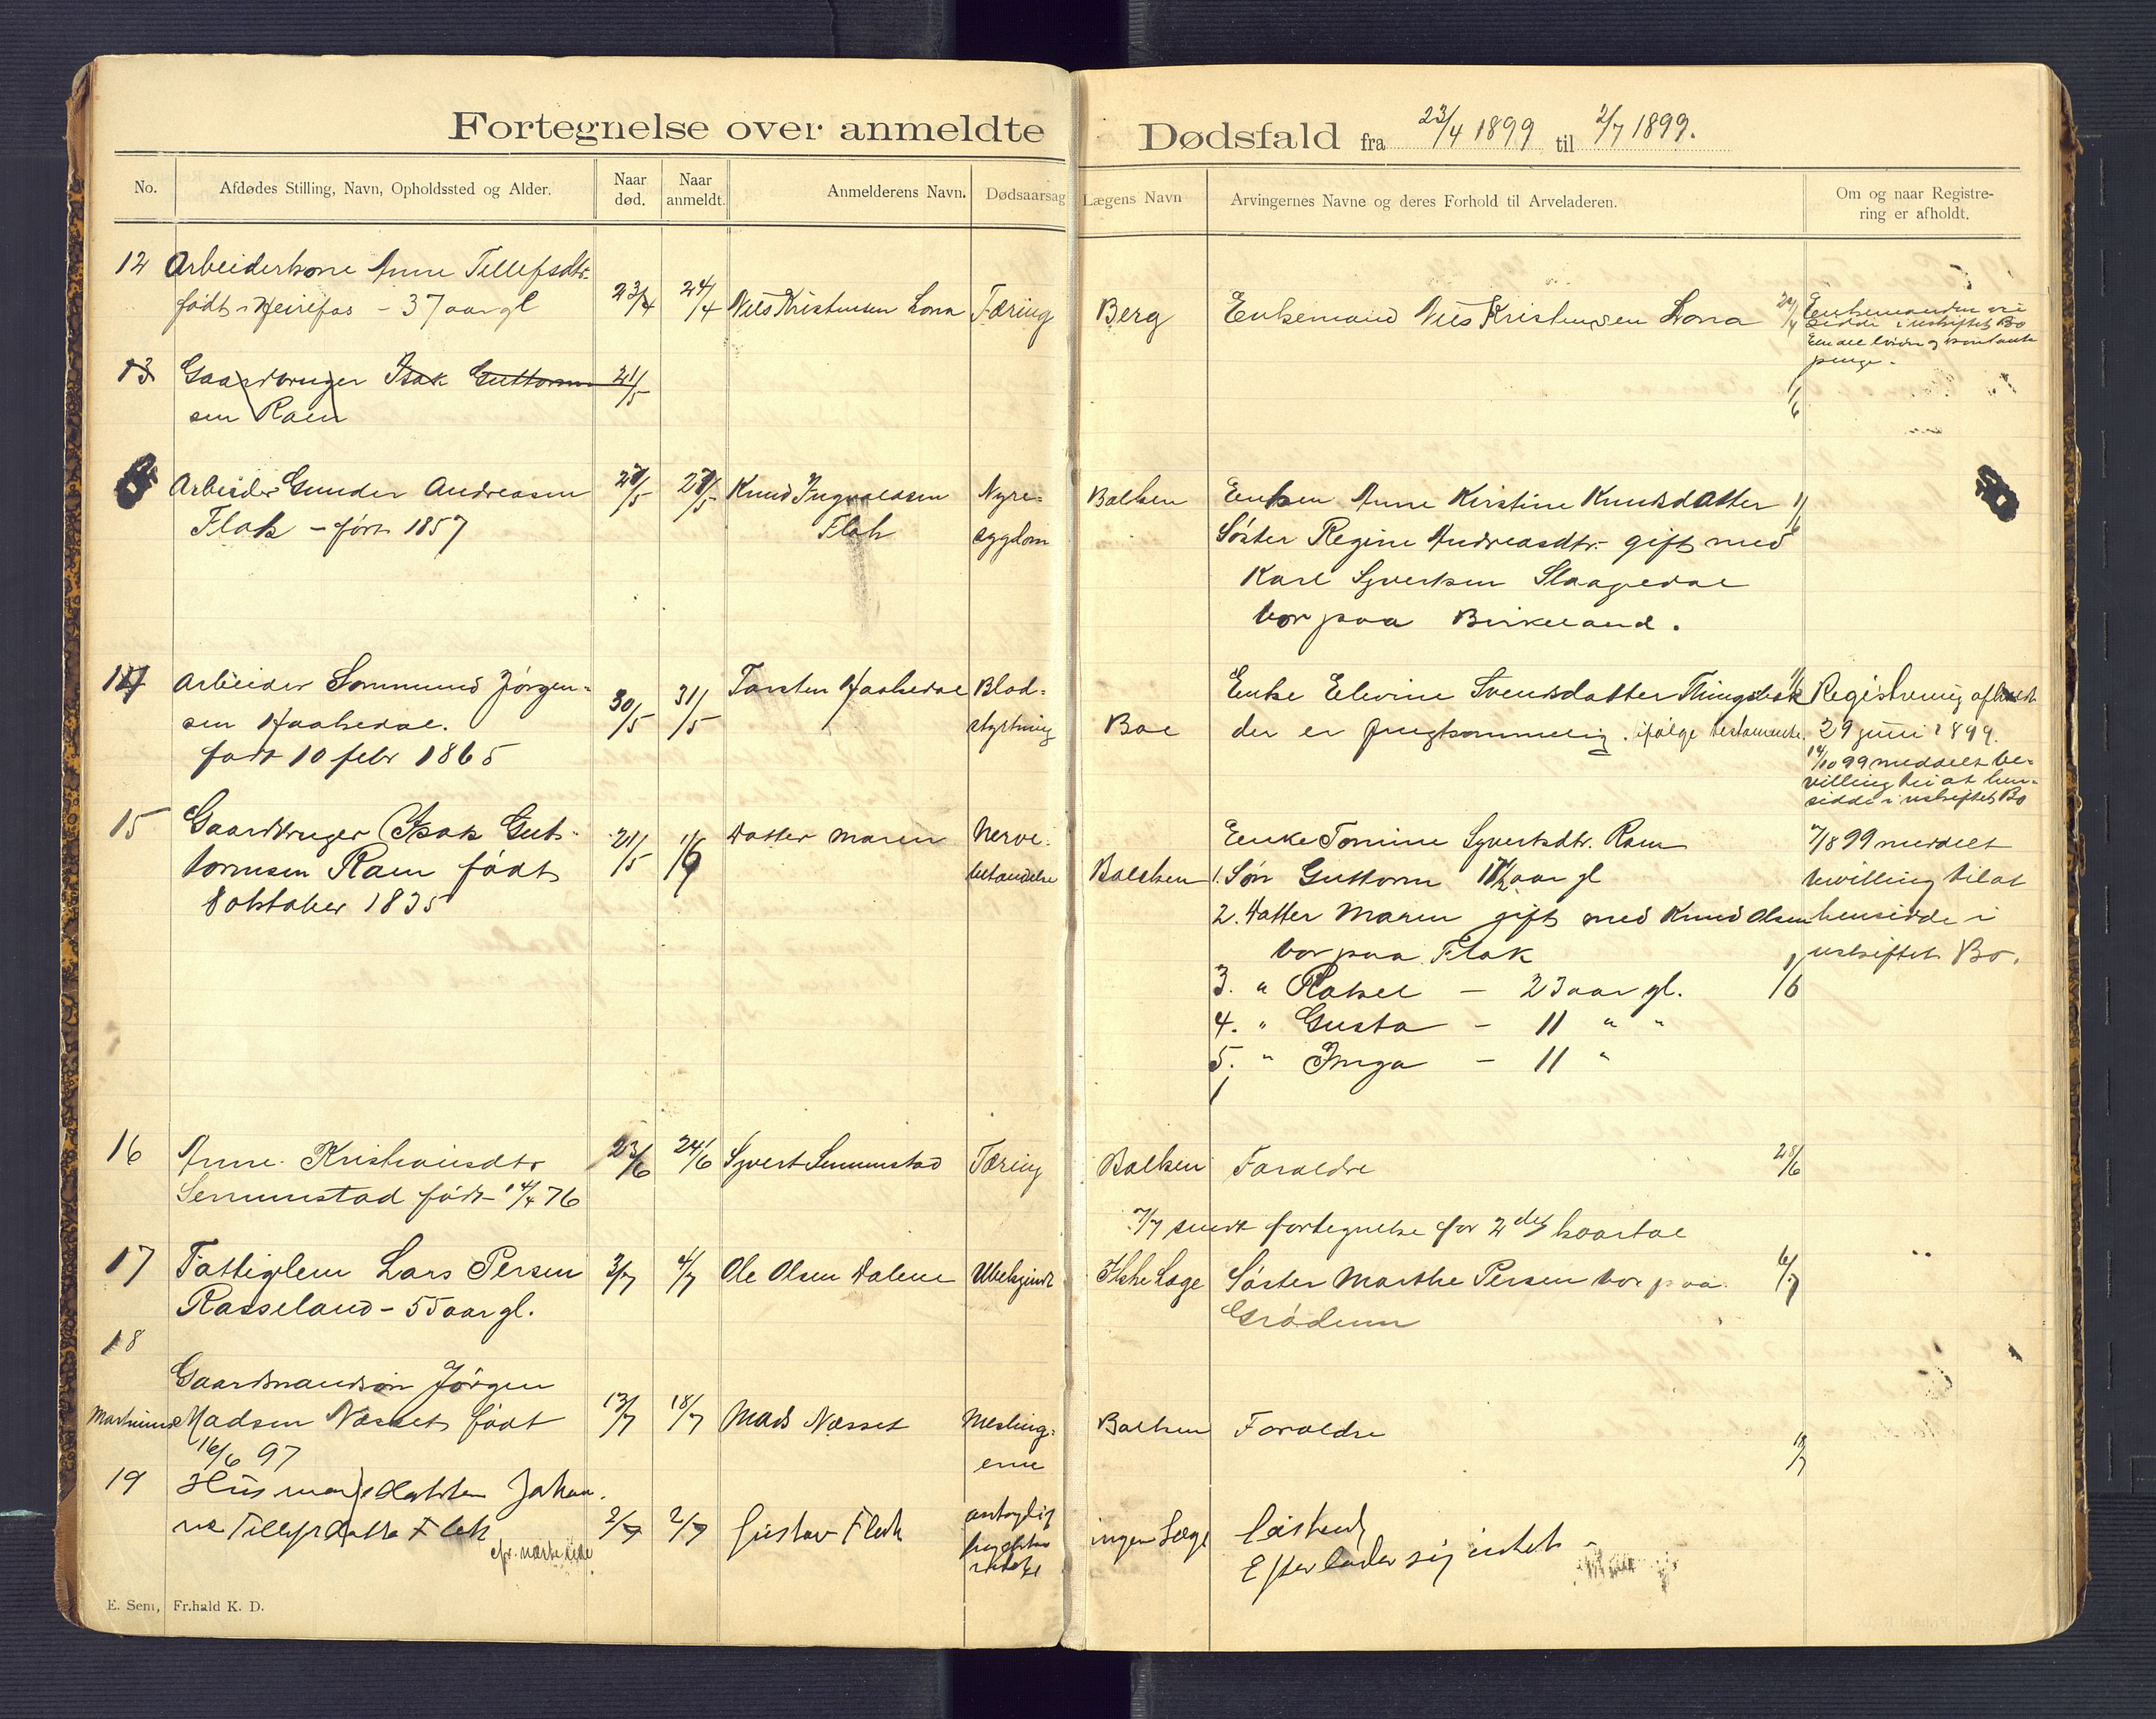 Fortegnelse over anmeldte Dødsfald fra 23/4 1899 til 2/7 1899.
No. Afdødes Stilling, Navn, Opholdssted og Alder. Naar død. Naar anmeldt. Anmelderens Navn. Dødsaarsag Lægens Navn Arvingernes Navne og deres Forhold til Arveladeren. Om og naar Registrering er afholdt.
12 Arbeiderkone Anne Tellefsdtr.
født i Heirefos - 37 aar gl 23/4 24/4 Nils Kristensen Lona Tæring Berg Enkemand Nils Kristensen Lona 24/4
Enkemanden
sidde i uskiftet Bo
penge.
13 Gaardbruger Isak Guttorm 21/5
sen Raen
1/6
Arbeider Gunder Andreasen 28/5 29/5 Knud Ingvaldsen Nyre= Balken Enken Anne Kirstine Knudsdatter 1/6
Flak - født 1857 Flak sygdom Søster Regine Andreasdtr. gift med
Karl Syvertsen Slaagedal
bor paa Birkeland.
14 Arbeider Sommund Jørgen= 30/5 31/5 Torsten Haabedal Blod= Enke Elevine Svendsdatter 1/6 Registrering afholdt
sen Haabedal. styrtning Boe der er frugtsommelig. ifølge testamente. 29 juni 1899.
født 10 febr 1865 14/10 99 meddelt be=
villing til at hen=
sidde i uskiftet Bo
15 Gaardbruger Isak Gut= 21/5 1/6 Datter Maren Nerve= Enke Tomine Syvertsdtr. Raen 7/8 99 meddelt
tormsen Raen født betændelse Balchen 1. Søn Guttorm 17 1/2 aar gl bevilling til at
8 oktober 1835 2. Datter Maren gift med Knud Olsen hensidde i
bor paa Flak 1/6 uskiftet Bo.
3. " Rakel - 23 aar gl.
4. " Gusta - 11 " "
5. " Inga - 11 "
16 Anne Kristiansdtr 23/6 24/6 Syvert Senumstad Tæring Balken Foraldre 28/6
Senumstad født 14/4 76
7/7 sendt fortegnelse for 2det kvartal
17 Fattiglem Lars Persen 3/7 4/7 Ole Olsen Dalene Ubekjendt Ikke Læge Søster Marthe Persen bor paa 6/7
Rasseland - 55 aar gl. Grødum
18
Gaardmandsøn Jørgen
Martinius Madsen Næsset født 13/7 18/7 Mads Næsset Mesling= Balken Foraldre
16/6 97 erne
19 Husmandsdatter Johan.
ne Tellefsdatter Flak 2/7 2/7 Gustav Flak antaglig ingen Læge
Efterlader sig intet
cfr. næste side
E. Sem, Fr.hald K. D.